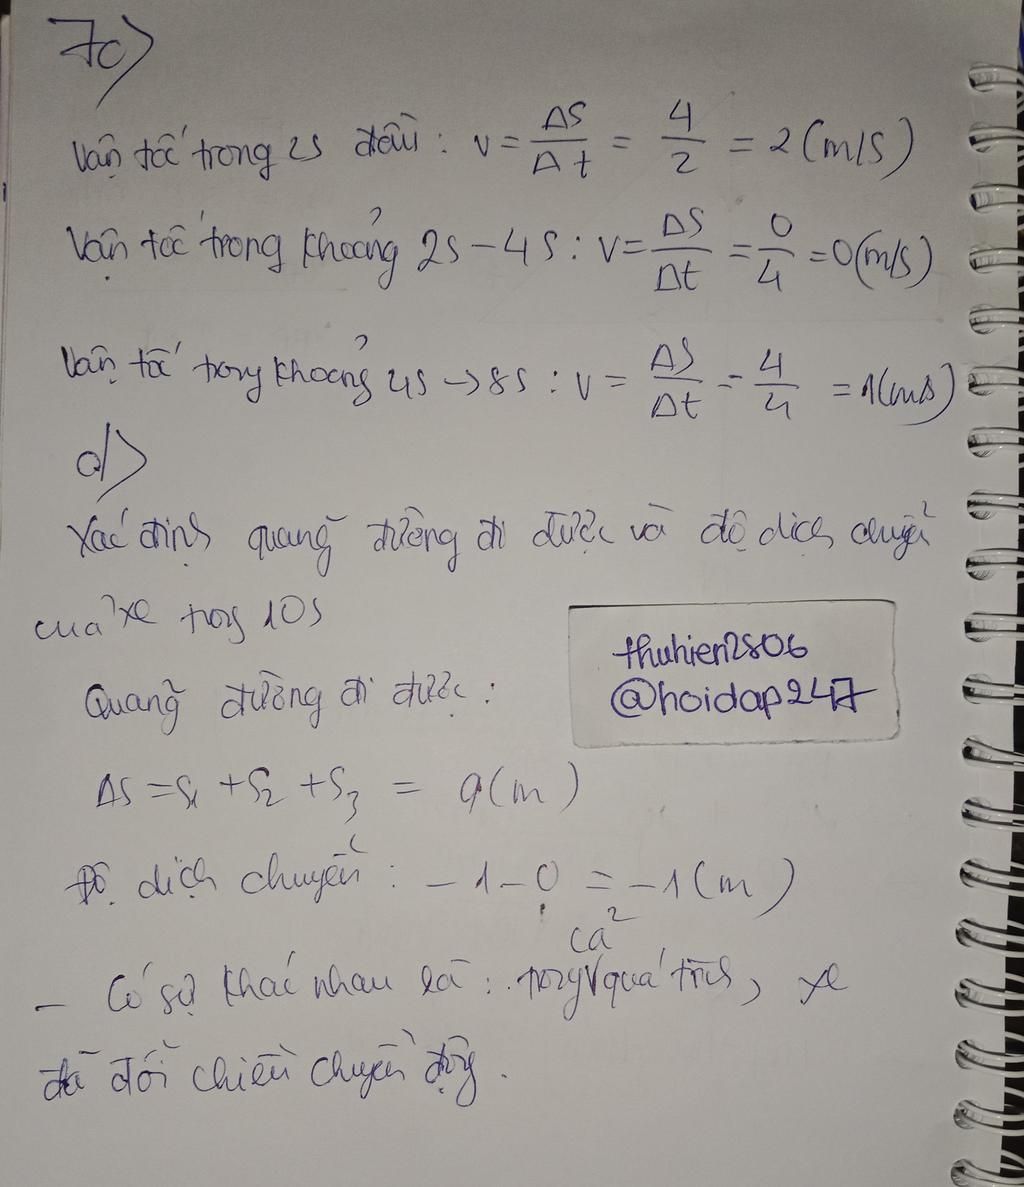 7c)
Vận tốc trong 2s đầu : v = ΔS/Δt = 4/2 = 2 (m/s)
Vận tốc trong khoảng 2s - 4s : v = ΔS/Δt = 0/4 = 0 (m/s)
Vận tốc trong khoảng 4s → 8s : v = ΔS/Δt = 4/4 = 1 (m/s)
d)
Xác định quãng đường đi được và độ dịch chuyển
của xe trong 10s
thuhien2806
@hoidap247
Quãng đường đi được :
ΔS = S1 + S2 + S3 = 9 (m)
Độ dịch chuyển : -1 - 0 = -1 (m)
- Có sự khác nhau là : trong cả quá trình, xe
đã đổi chiều chuyển động.